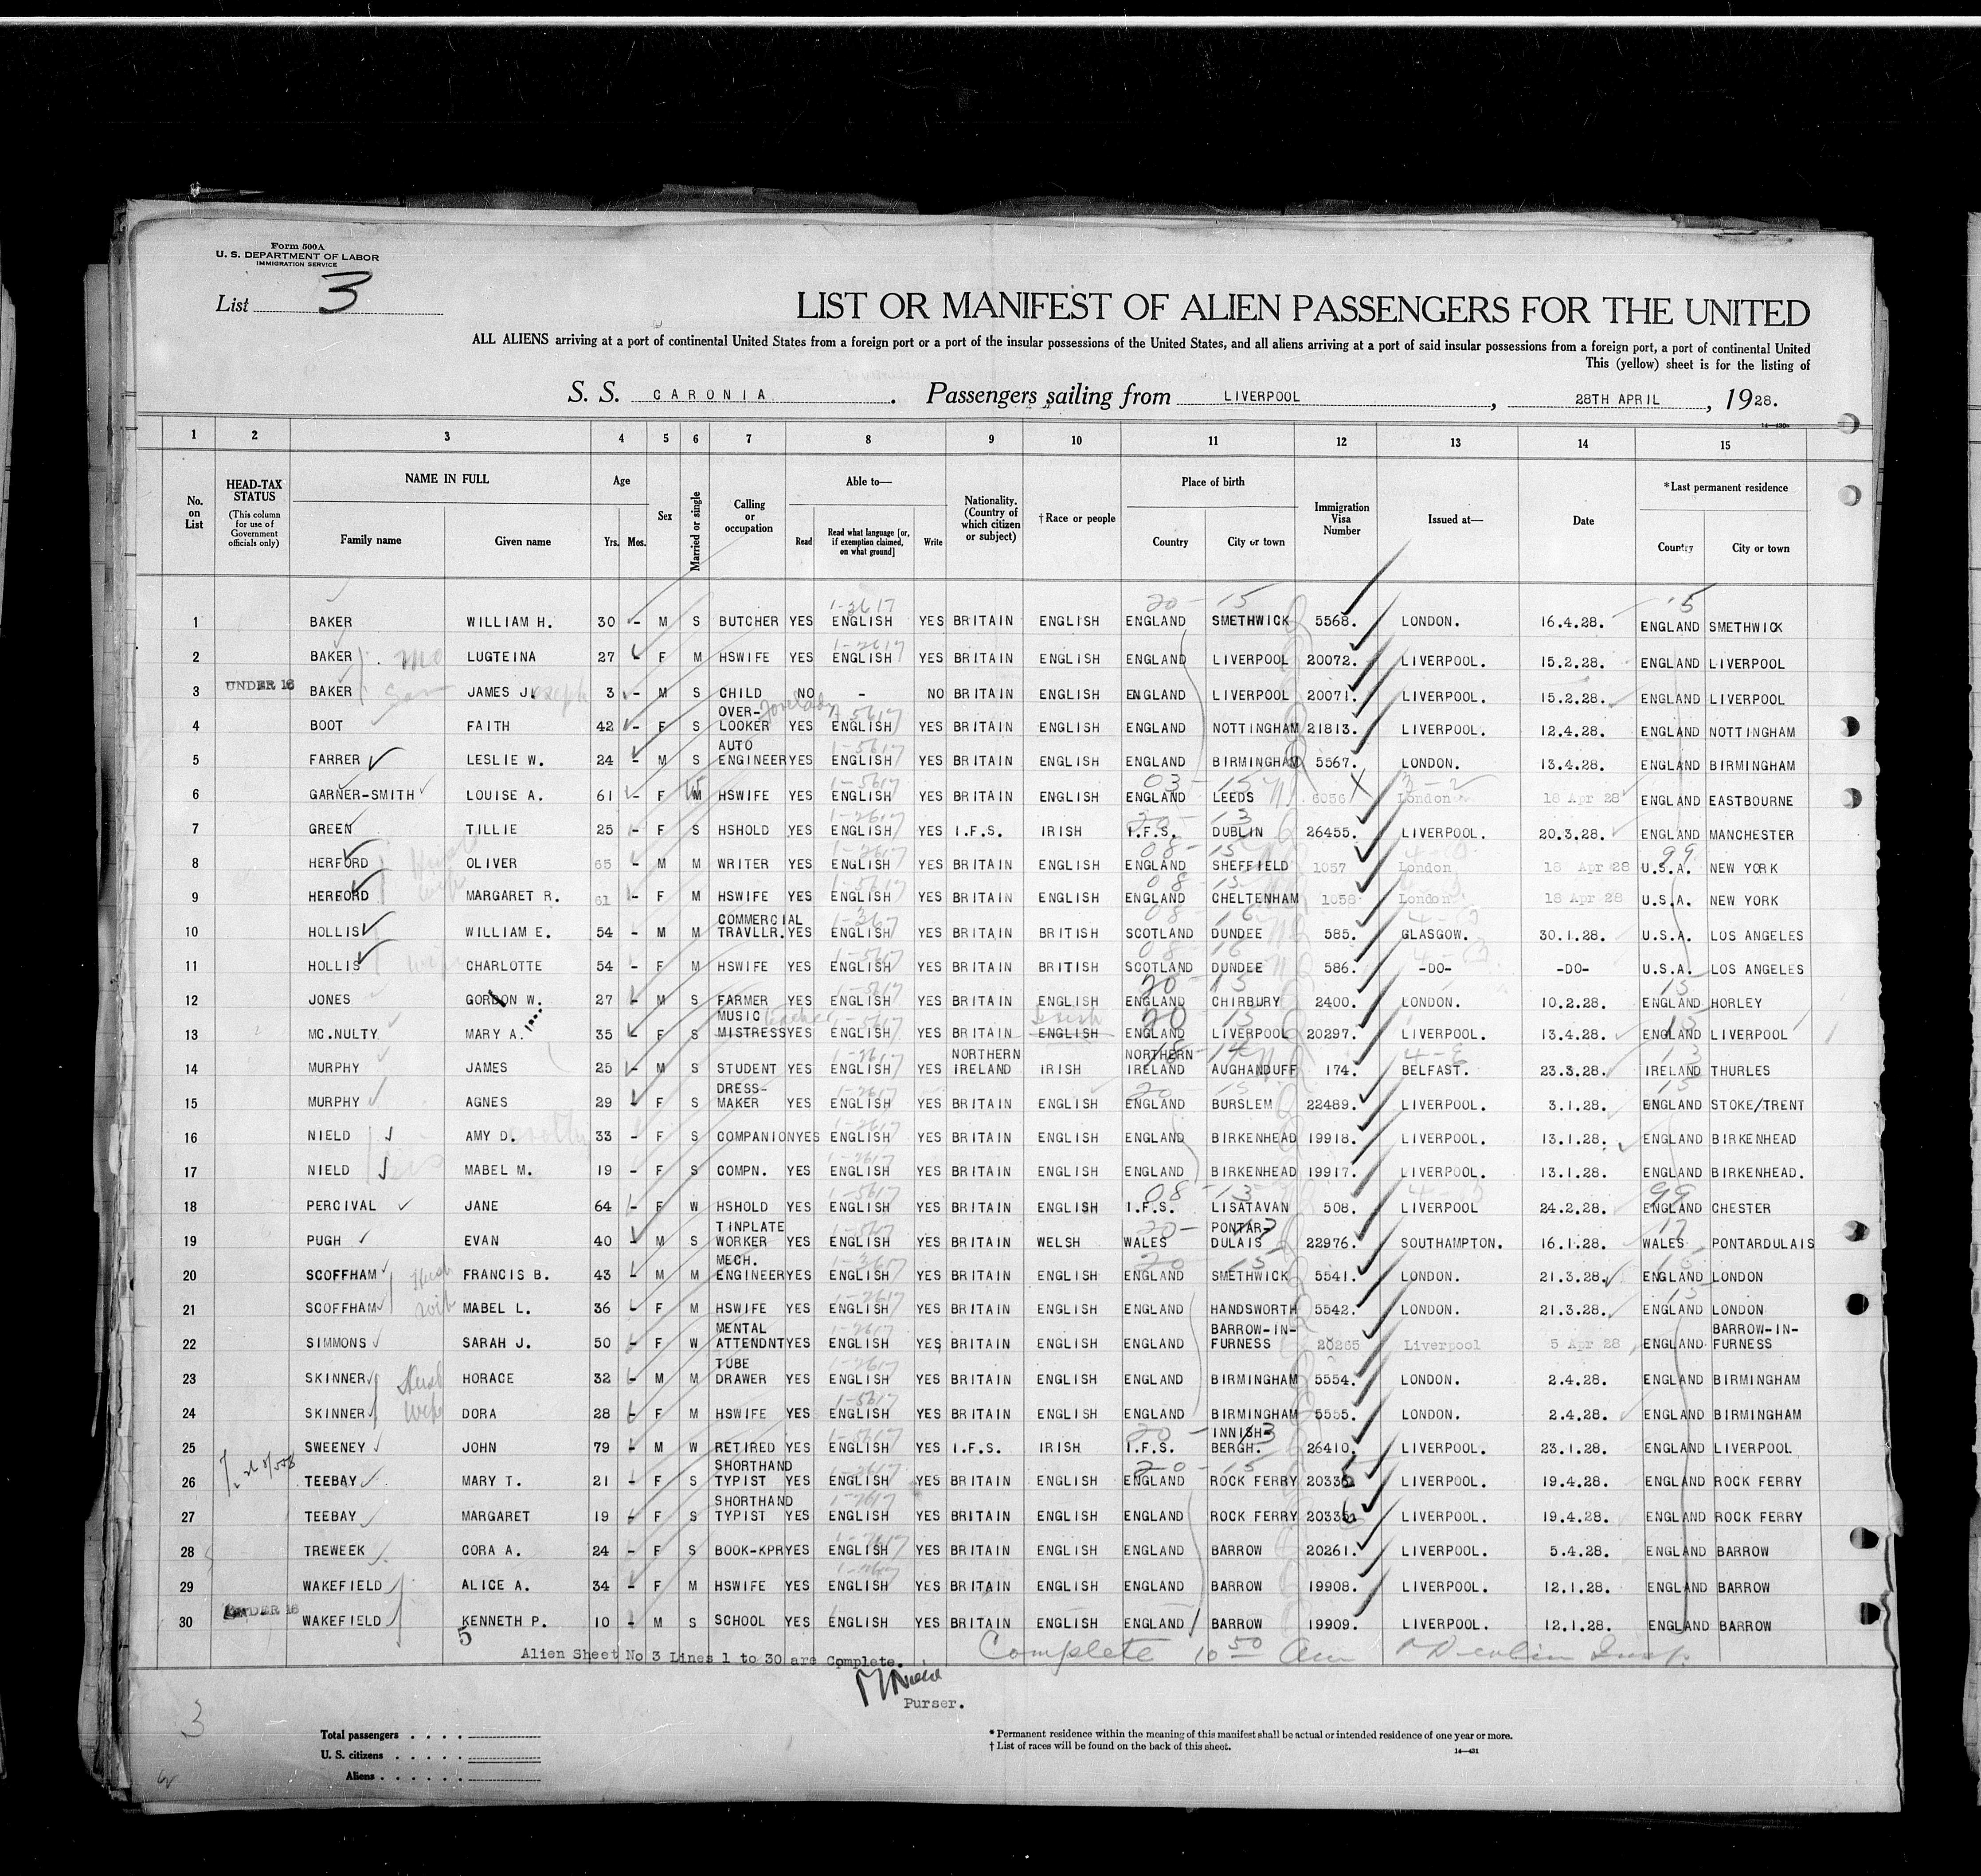 Form 500A
U. S. DEPARTMENT OF LABOR
IMMIGRATION SERVICE
List 3
LIST OR MANIFEST OF ALIEN PASSENGERS FOR THE UNITED
ALL ALIENS arriving at a port of continental United States from a foreign port or a port of the insular possessions of the United States, and all aliens arriving at a port of said insular possessions from a foreign port, a port of continental United
This (yellow) sheet is for the listing of
S. S. CARONIA. Passengers sailing from LIVERPOOL, 28TH APRIL, 1928.
1 2 3 4 5 6 7 8 9 10 11 12 13 14 15
No. on List
HEAD-TAX STATUS (This column for use of Government officials only)
NAME IN FULL Family name Given name
Age Yrs. Mos.
Sex
Married or single
Calling or occupation
Able to— Read Read what language [or, if exemption claimed, on what ground] Write
Nationality. (Country of which citizen or subject)
†Race or people
Place of birth Country City or town
Immigration Visa Number
Issued at—
Date
*Last permanent residence Country City or town
1 BAKER WILLIAM H. 30 - M S BUTCHER YES ENGLISH YES BRITAIN ENGLISH ENGLAND SMETHWICK 5568. LONDON. 16.4.28. ENGLAND SMETHWICK
2 BAKER LUGTEINA 27 - F M HSWIFE YES ENGLISH YES BRITAIN ENGLISH ENGLAND LIVERPOOL 20072. LIVERPOOL. 15.2.28. ENGLAND LIVERPOOL
UNDER 16 3 BAKER JAMES J. 3 - M S CHILD NO - NO BRITAIN ENGLISH ENGLAND LIVERPOOL 20071. LIVERPOOL. 15.2.28. ENGLAND LIVERPOOL
4 BOOT FAITH 42 - F S OVER-LOOKER YES ENGLISH YES BRITAIN ENGLISH ENGLAND NOTTINGHAM 21813. LIVERPOOL. 12.4.28. ENGLAND NOTTINGHAM
5 FARRER LESLIE W. 24 - M S AUTO ENGINEER YES ENGLISH YES BRITAIN ENGLISH ENGLAND BIRMINGHAM 5567. LONDON. 13.4.28. ENGLAND BIRMINGHAM
6 GARNER-SMITH LOUISE A. 61 - F M HSWIFE YES ENGLISH YES BRITAIN ENGLISH ENGLAND LEEDS 6056 London 18 Apr 28 ENGLAND EASTBOURNE
7 GREEN TILLIE 25 - F S HSHOLD YES ENGLISH YES I.F.S. IRISH I.F.S. DUBLIN 26455. LIVERPOOL. 20.3.28. ENGLAND MANCHESTER
8 HERFORD OLIVER 65 - M M WRITER YES ENGLISH YES BRITAIN ENGLISH ENGLAND SHEFFIELD 1057 London 18 Apr 28 U.S.A. NEW YORK
9 HERFORD MARGARET R. 61 - F M HSWIFE YES ENGLISH YES BRITAIN ENGLISH ENGLAND CHELTENHAM 1058 London 18 Apr 28 U.S.A. NEW YORK
10 HOLLIS WILLIAM E. 54 - M M COMMERCIAL TRAVLLR. YES ENGLISH YES BRITAIN BRITISH SCOTLAND DUNDEE 585. GLASGOW. 30.1.28. U.S.A. LOS ANGELES
11 HOLLIS CHARLOTTE 54 - F M HSWIFE YES ENGLISH YES BRITAIN BRITISH SCOTLAND DUNDEE 586. -DO- -DO- U.S.A. LOS ANGELES
12 JONES GORDON W. 27 - M S FARMER YES ENGLISH YES BRITAIN ENGLISH ENGLAND CHIRBURY 2400. LONDON. 10.2.28. ENGLAND HORLEY
13 MC.NULTY MARY A. 35 - F S MUSIC MISTRESS YES ENGLISH YES BRITAIN ENGLISH Irish ENGLAND LIVERPOOL 20297. LIVERPOOL. 13.4.28. ENGLAND LIVERPOOL
14 MURPHY JAMES 25 - M S STUDENT YES ENGLISH YES NORTHERN IRELAND IRISH NORTHERN IRELAND AUGHANDUFF 174. BELFAST. 23.3.28. IRELAND THURLES
15 MURPHY AGNES 29 - F S DRESS-MAKER YES ENGLISH YES BRITAIN ENGLISH ENGLAND BURSLEM 22489. LIVERPOOL. 3.1.28. ENGLAND STOKE/TRENT
16 NIELD AMY D. 33 - F S COMPANION YES ENGLISH YES BRITAIN ENGLISH ENGLAND BIRKENHEAD 19918. LIVERPOOL. 13.1.28. ENGLAND BIRKENHEAD
17 NIELD MABEL M. 19 - F S COMPN. YES ENGLISH YES BRITAIN ENGLISH ENGLAND BIRKENHEAD 19917. LIVERPOOL. 13.1.28. ENGLAND BIRKENHEAD.
18 PERCIVAL JANE 64 - F W HSHOLD YES ENGLISH YES BRITAIN ENGLISH I.F.S. LISATAVAN 508. LIVERPOOL 24.2.28. ENGLAND CHESTER
19 PUGH EVAN 40 - M S TINPLATE WORKER YES ENGLISH YES BRITAIN WELSH WALES PONTAR-DULAIS 22976. SOUTHAMPTON. 16.1.28. WALES PONTARDULAIS
20 SCOFFHAM Husb FRANCIS B. 43 - M M MECH. ENGINEER YES ENGLISH YES BRITAIN ENGLISH ENGLAND SMETHWICK 5541. LONDON. 21.3.28. ENGLAND LONDON
21 SCOFFHAM wife MABEL L. 36 - F M HSWIFE YES ENGLISH YES BRITAIN ENGLISH ENGLAND HANDSWORTH 5542. LONDON. 21.3.28. ENGLAND LONDON
22 SIMMONS SARAH J. 50 - F W MENTAL ATTENDNT YES ENGLISH YES BRITAIN ENGLISH ENGLAND BARROW-IN-FURNESS 20265 Liverpool 5 Apr 28 ENGLAND BARROW-IN-FURNESS
23 SKINNER Husb HORACE 32 - M M TUBE DRAWER YES ENGLISH YES BRITAIN ENGLISH ENGLAND BIRMINGHAM 5554. LONDON. 2.4.28. ENGLAND BIRMINGHAM
24 SKINNER wife DORA 28 - F M HSWIFE YES ENGLISH YES BRITAIN ENGLISH ENGLAND BIRMINGHAM 5555. LONDON. 2.4.28. ENGLAND BIRMINGHAM
25 SWEENEY JOHN 79 - M W RETIRED YES ENGLISH YES I.F.S. IRISH I.F.S. INNISH-BERGH. 26410. LIVERPOOL. 23.1.28. ENGLAND LIVERPOOL
26 TEEBAY MARY T. 21 - F S SHORTHAND TYPIST YES ENGLISH YES BRITAIN ENGLISH ENGLAND ROCK FERRY 20335 LIVERPOOL. 19.4.28. ENGLAND ROCK FERRY
27 TEEBAY MARGARET 19 - F S SHORTHAND TYPIST YES ENGLISH YES BRITAIN ENGLISH ENGLAND ROCK FERRY 20336 LIVERPOOL. 19.4.28. ENGLAND ROCK FERRY
28 TREWEEK CORA A. 24 - F S BOOK-KPR YES ENGLISH YES BRITAIN ENGLISH ENGLAND BARROW 20261. LIVERPOOL. 5.4.28. ENGLAND BARROW
29 WAKEFIELD ALICE A. 34 - F M HSWIFE YES ENGLISH YES BRITAIN ENGLISH ENGLAND BARROW 19908. LIVERPOOL. 12.1.28. ENGLAND BARROW
UNDER 16 30 WAKEFIELD KENNETH P. 10 - M S SCHOOL YES ENGLISH YES BRITAIN ENGLISH ENGLAND BARROW 19909. LIVERPOOL. 12.1.28. ENGLAND BARROW
5
Alien Sheet No 3 Lines 1 to 30 are Complete. Complete 10 50 Am
Purser.
3
Total passengers . . . .
U. S. citizens . . . . .
Aliens . . . . . .
* Permanent residence within the meaning of this manifest shall be actual or intended residence of one year or more.
† List of races will be found on the back of this sheet.
14—431